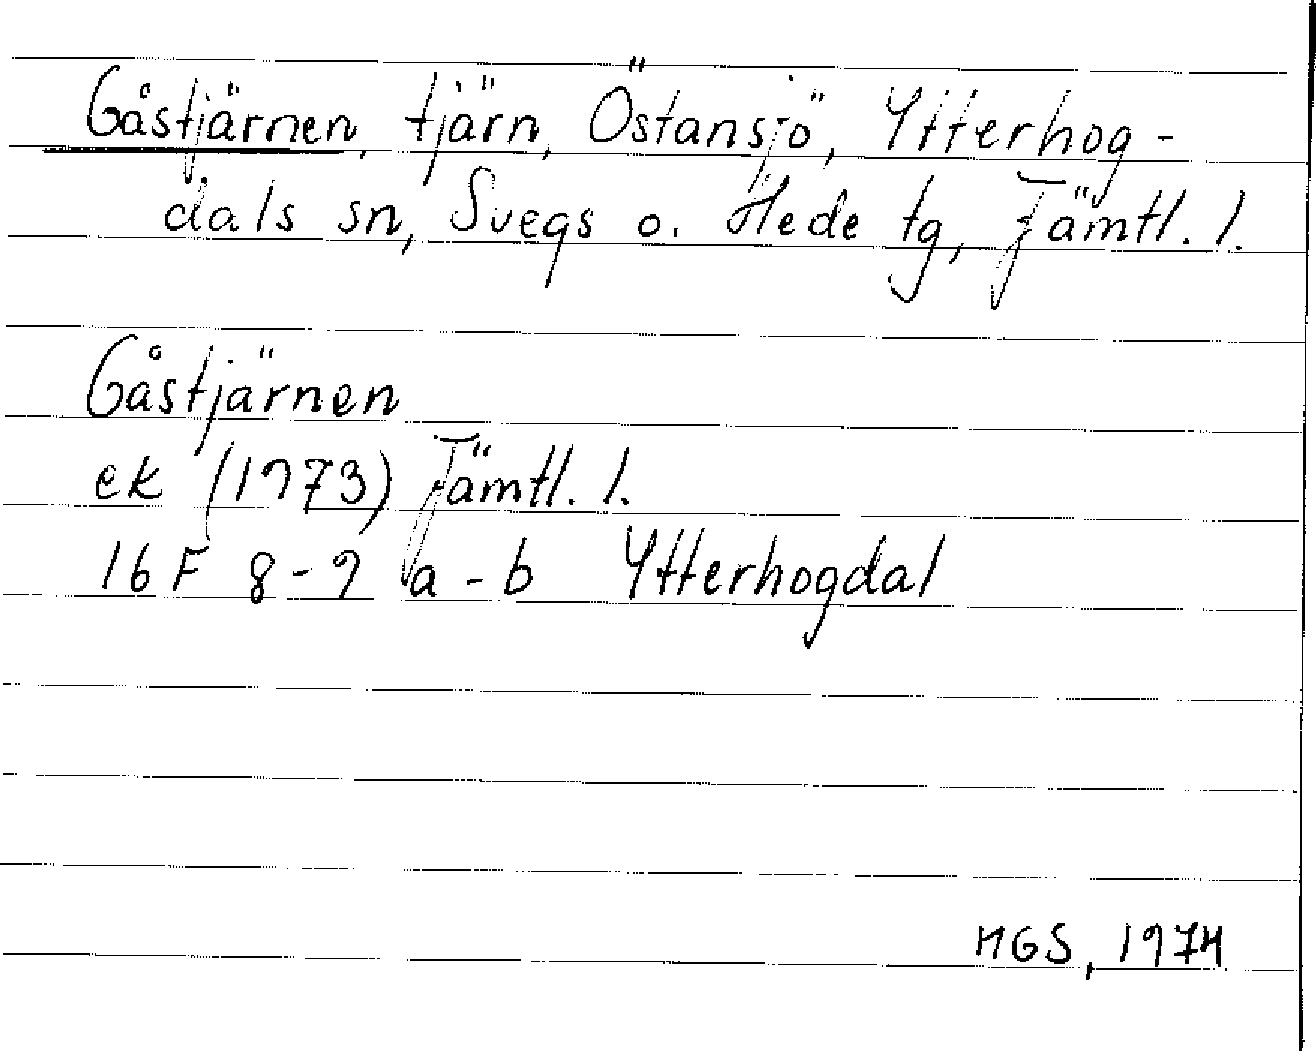 Gåstjärnen, tjärn, Östansjö, Ytterhog-
dals sn, Svegs o. Hede tg, Jämtl. l.
Gåstjärnen
ek (1973) Jämtl. l.
16 F 8-9 a-b Ytterhogdal
MGS, 1974